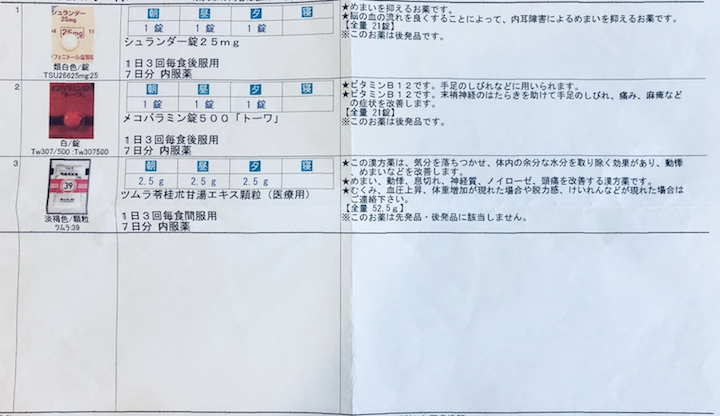 1
シュランダー
25mg
26 25mg
朝 昼 夕 寝
1錠 1錠 1錠
シュランダー錠25mg
1日3回毎食後服用
7日分 内服薬
類白色/錠
TSU26625mg:25
★めまいを抑えるお薬です。
★脳の血の流れを良くすることによって、内耳障害によるめまいを抑えるお薬です。
【全量 21錠】
※このお薬は後発品です。
2
朝 昼 夕 寝
1錠 1錠 1錠
メコバラミン錠500「トーワ」
1日3回毎食後服用
7日分 内服薬
白/錠
Tw307/500 :Tw307500
★ビタミンB12です。手足のしびれなどに用いられます。
★ビタミンB12です。末梢神経のはたらきを助けて手足のしびれ、痛み、麻痺など
の症状を改善します。
【全量 21錠】
※このお薬は後発品です。
3
39
朝 昼 夕 寝
2.5g 2.5g 2.5g
ツムラ苓桂朮甘湯エキス顆粒(医療用)
1日3回毎食間服用
7日分 内服薬
淡褐色/顆粒
ツムラ:39
★この漢方薬は、気分を落ちつかせ、体内の余分な水分を取り除く効果があり、動悸
、めまいなどを改善します。
★めまい、動悸、息切れ、神経質、ノイローゼ、頭痛を改善する漢方薬です。
★むくみ、血圧上昇、体重増加が現れた場合や脱力感、けいれんなどが現れた場合は
ご連絡下さい。
【全量 52.5g】
※このお薬は先発品・後発品に該当しません。